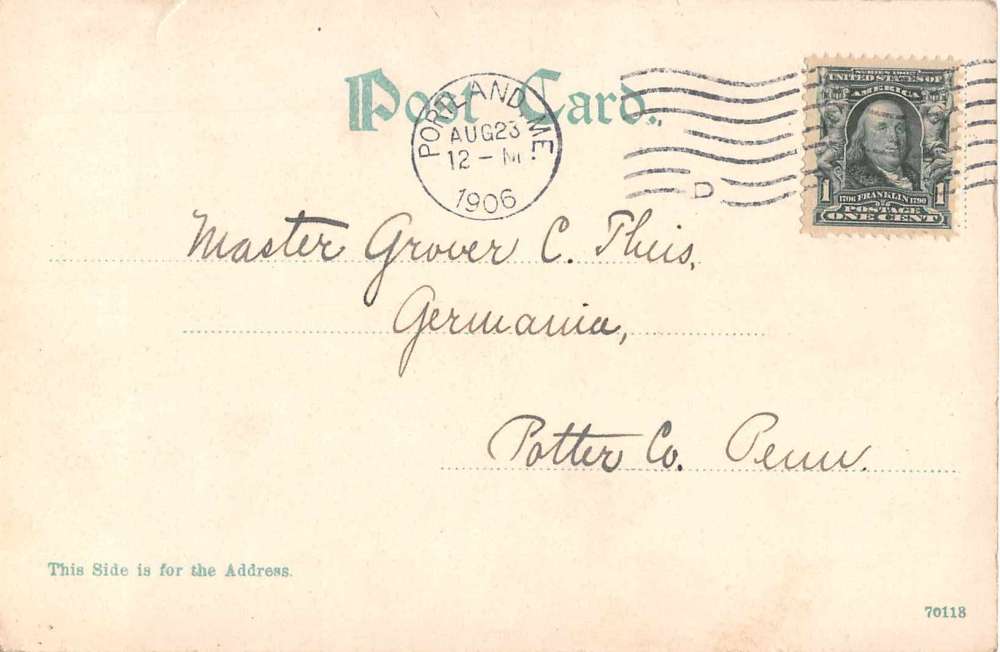 Post Card.
PORTLAND, ME.
AUG 23
12 - M
1906
D
SERIES 1902
UNITED STATES OF
AMERICA
1706 FRANKLIN 1790
1 1
POSTAGE
ONE CENT
Master Grover C. Theis,
Germania,
Potter Co. Penn.
This Side is for the Address.
70118